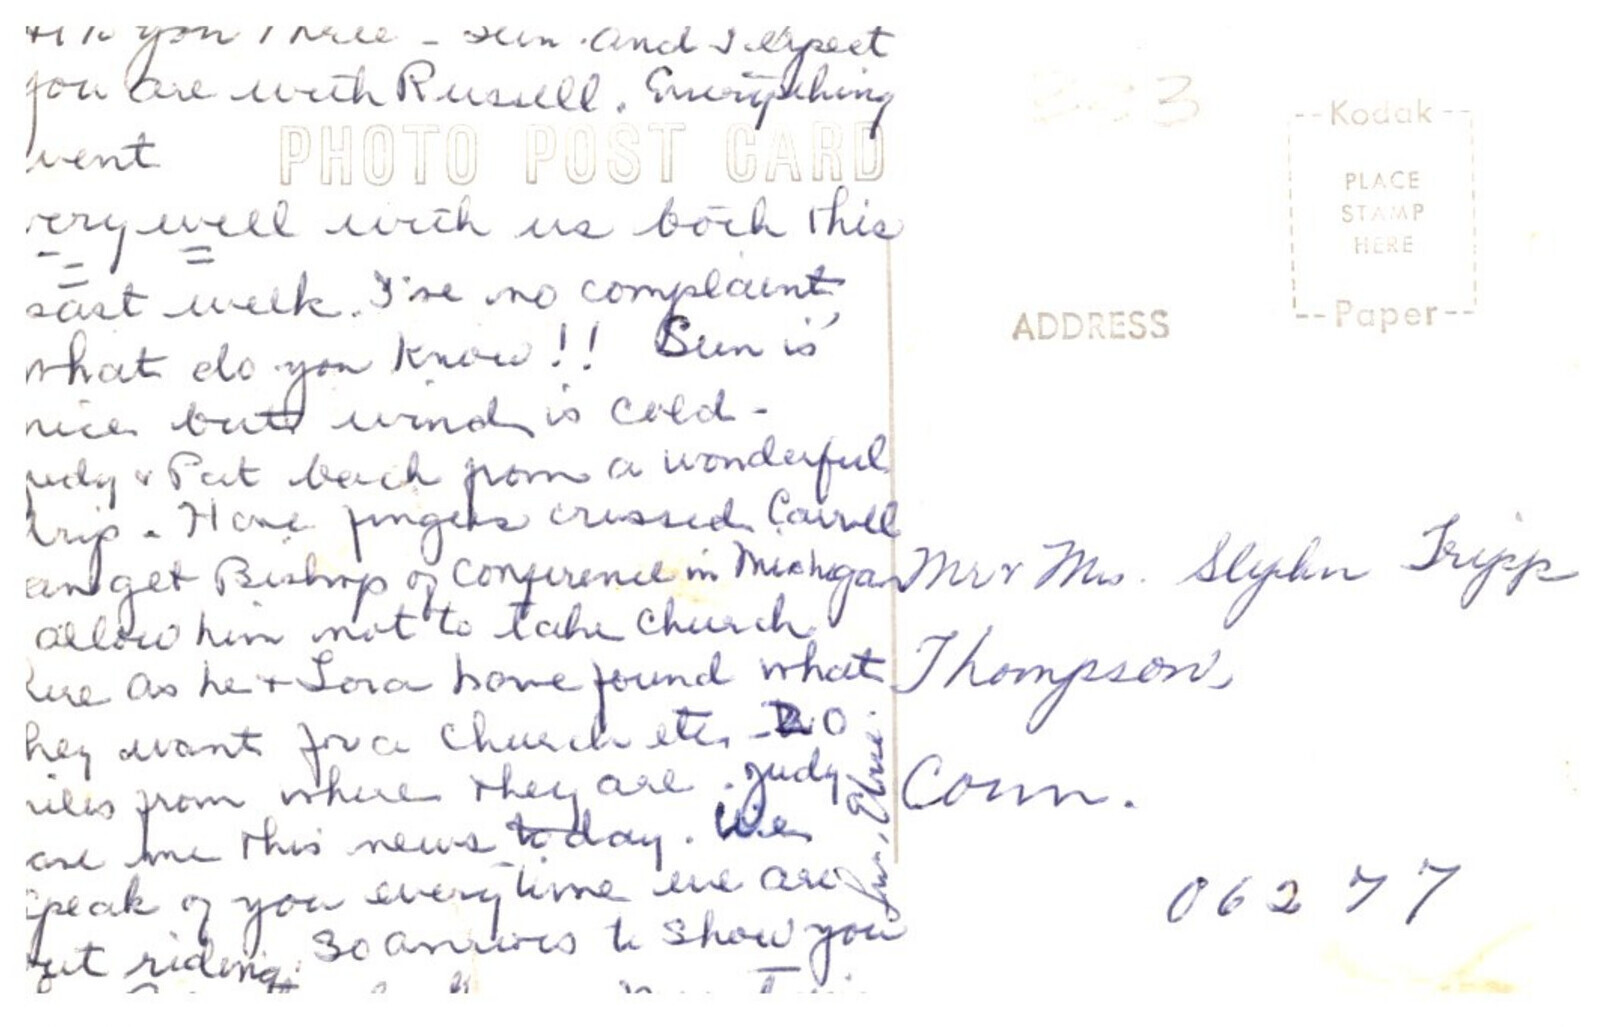 you Three - Sun. and I expect
you are with Russell. Everything
went
PHOTO POST CARD
very well with us both this
past week. I've no complaint,
what do you know!! Sun is
nice but wind is cold -
Judy & Pat back from a wonderful
trip. Have fingers crossed Carroll
can get Bishop of Conference in Michigan
allow him not to take church
here as he & Lora have found what
they want for a church etc. 20
miles from where they are. Judy
gave me this news today. We
speak of you everytime we are
out riding. So anxious to show you
333
Kodak
PLACE
STAMP
HERE
Paper
ADDRESS
Mr & Mrs. Tripp
Thompson,
Conn.
06277